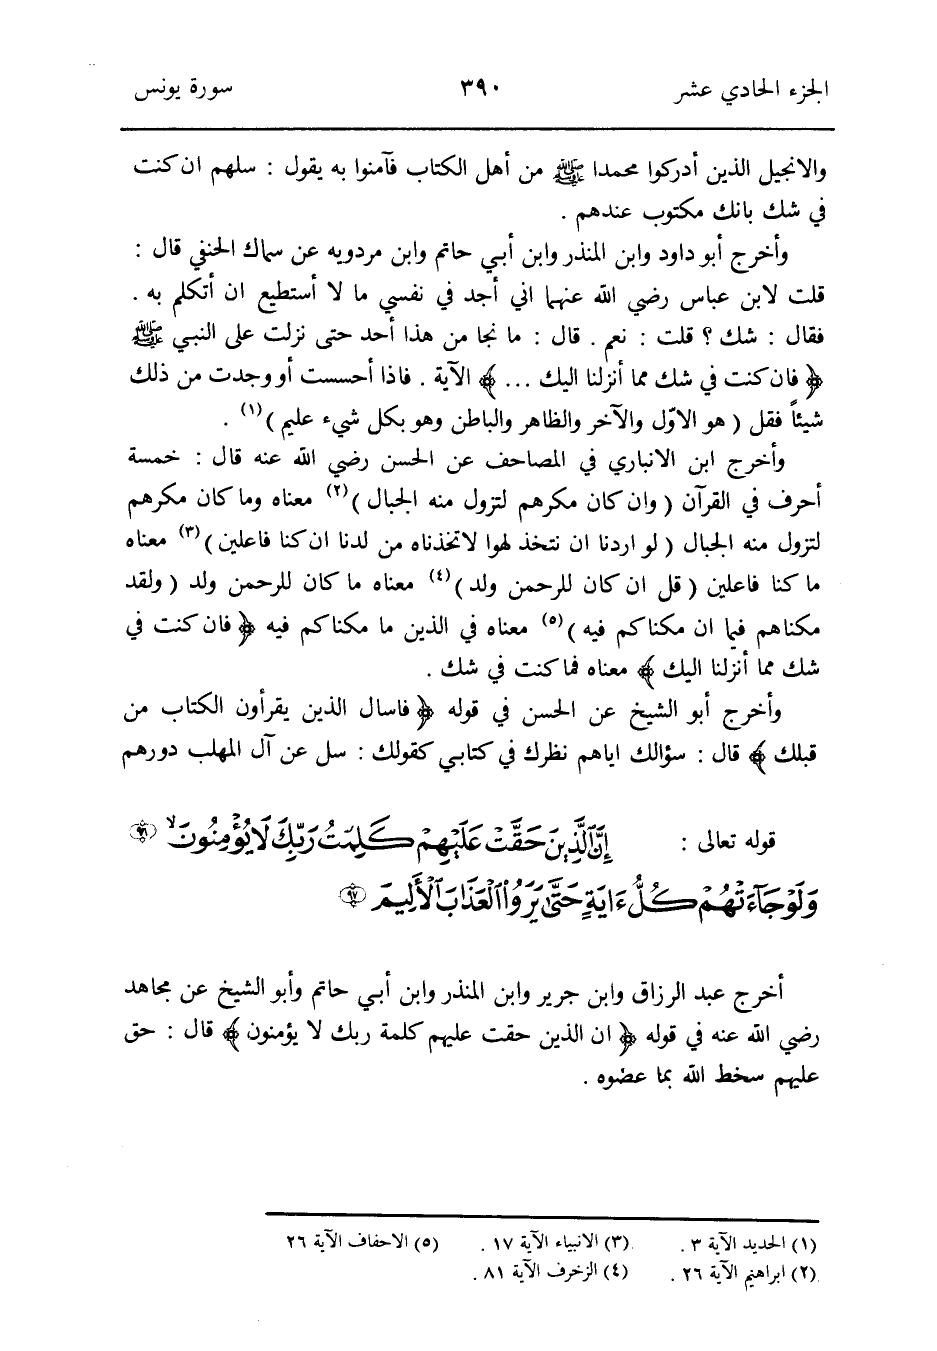 الجزء الحادي عشر ٣٩٠ سورة يونس
والانجيل الذين أدركوا محمدا ﷺ من أهل الكتاب فآمنوا به يقول : سلهم ان كنت
في شك بانك مكتوب عندهم .
وأخرج أبو داود وابن المنذر وابن أبي حاتم وابن مردويه عن سماك الحنفي قال :
قلت لابن عباس رضي الله عنهما اني أجد في نفسي ما لا أستطيع ان أتكلم به .
فقال : شك ؟ قلت : نعم . قال : ما نجا من هذا أحد حتى نزلت على النبي ﷺ
﴿ فان كنت في شك مما أنزلنا اليك ... ﴾ الآية . فاذا أحسست أو وجدت من ذلك
شيئاً فقل ( هو الاوّل والآخر والظاهر والباطن وهو بكل شيء عليم )(١) .
وأخرج ابن الانباري في المصاحف عن الحسن رضي الله عنه قال : خمسة
أحرف في القرآن ( وان كان مكرهم لتزول منه الجبال )(٢) معناه وما كان مكرهم
لتزول منه الجبال ( لو اردنا ان نتخذ لهوا لاتخذناه من لدنا ان كنا فاعلين )(٣) معناه
ما كنا فاعلين ( قل ان كان للرحمن ولد )(٤) معناه ما كان للرحمن ولد ( ولقد
مكناهم فيما ان مكناكم فيه )(٥) معناه في الذين ما مكناكم فيه ﴿ فان كنت في
شك مما أنزلنا اليك ﴾ معناه فما كنت في شك .
وأخرج أبو الشيخ عن الحسن في قوله ﴿ فاسال الذين يقرأون الكتاب من
قبلك ﴾ قال : سؤالك اياهم نظرك في كتابي كقولك : سل عن آل المهلب دورهم
قوله تعالى : إِنَّ ٱلَّذِينَ حَقَّتْ عَلَيْهِمْ كَلِمَتُ رَبِّكَ لَا يُؤْمِنُونَ ۙ ٩٦
وَلَوْ جَآءَتْهُمْ كُلُّ ءَايَةٍ حَتَّىٰ يَرَوُا۟ ٱلْعَذَابَ ٱلْأَلِيمَ ٩٧
أخرج عبد الرزاق وابن جرير وابن المنذر وابن أبي حاتم وأبو الشيخ عن مجاهد
رضي الله عنه في قوله ﴿ ان الذين حقت عليهم كلمة ربك لا يؤمنون ﴾ قال : حق
عليهم سخط الله بما عضوه .
(١) الحديد الآية ٣ . (٣) الانبياء الآية ١٧ . (٥) الاحقاف الآية ٢٦
(٢) ابراهيم الآية ٢٦ . (٤) الزخرف الآية ٨١ .